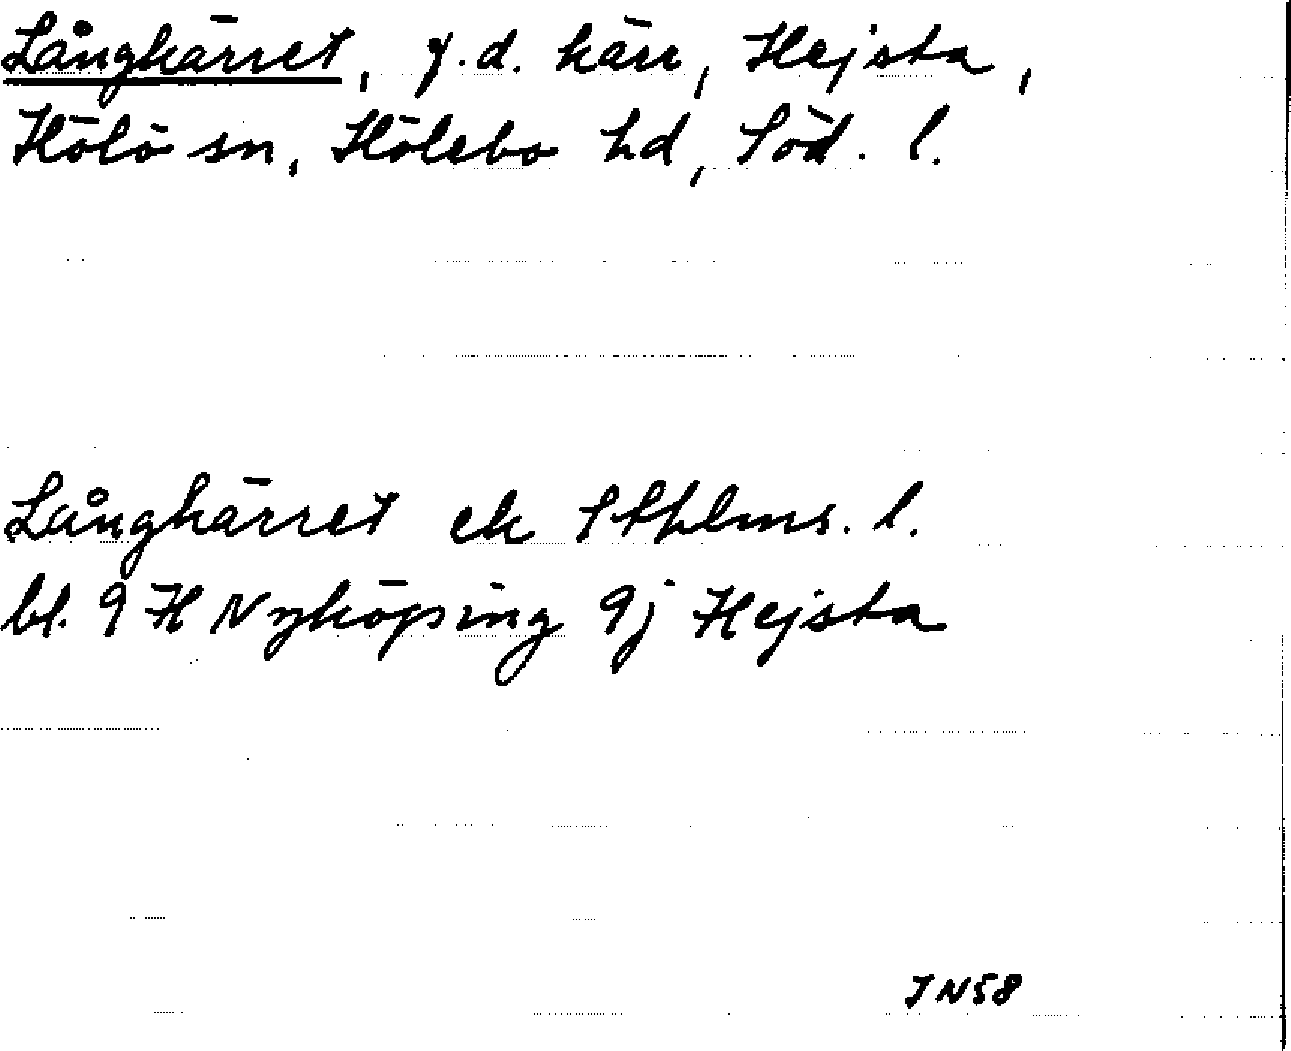 Långkärret, f.d. kärr, Hejsta,
Hölö sn, Hölebo hd, Söd. l.
Långkärret ek Sthlms. l.
bl. 9 H Nyköping 9j Hejsta
JN58